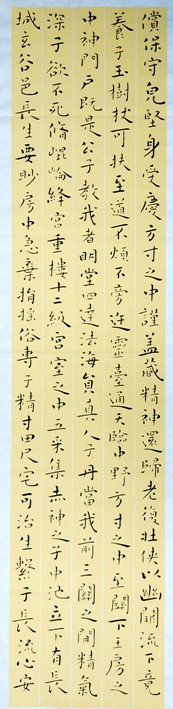 償保守完堅身受慶方寸之中謹盖藏精神還歸老復壯俠以幽闕流下竟
養子玉樹杖可扶至道不煩不旁迕靈臺通天臨中野方寸之中至關下玉房之
中神門戶既是公子教我者明堂四達法海員真人子丹當我前三關之間精氣
深子欲不死脩崐崘絳宮重樓十二級宮室之中五采集赤神之子中池立下有長
城玄谷邑長生要眇房中急棄捐搖俗專子精寸田尺宅可治生繫子長流心安